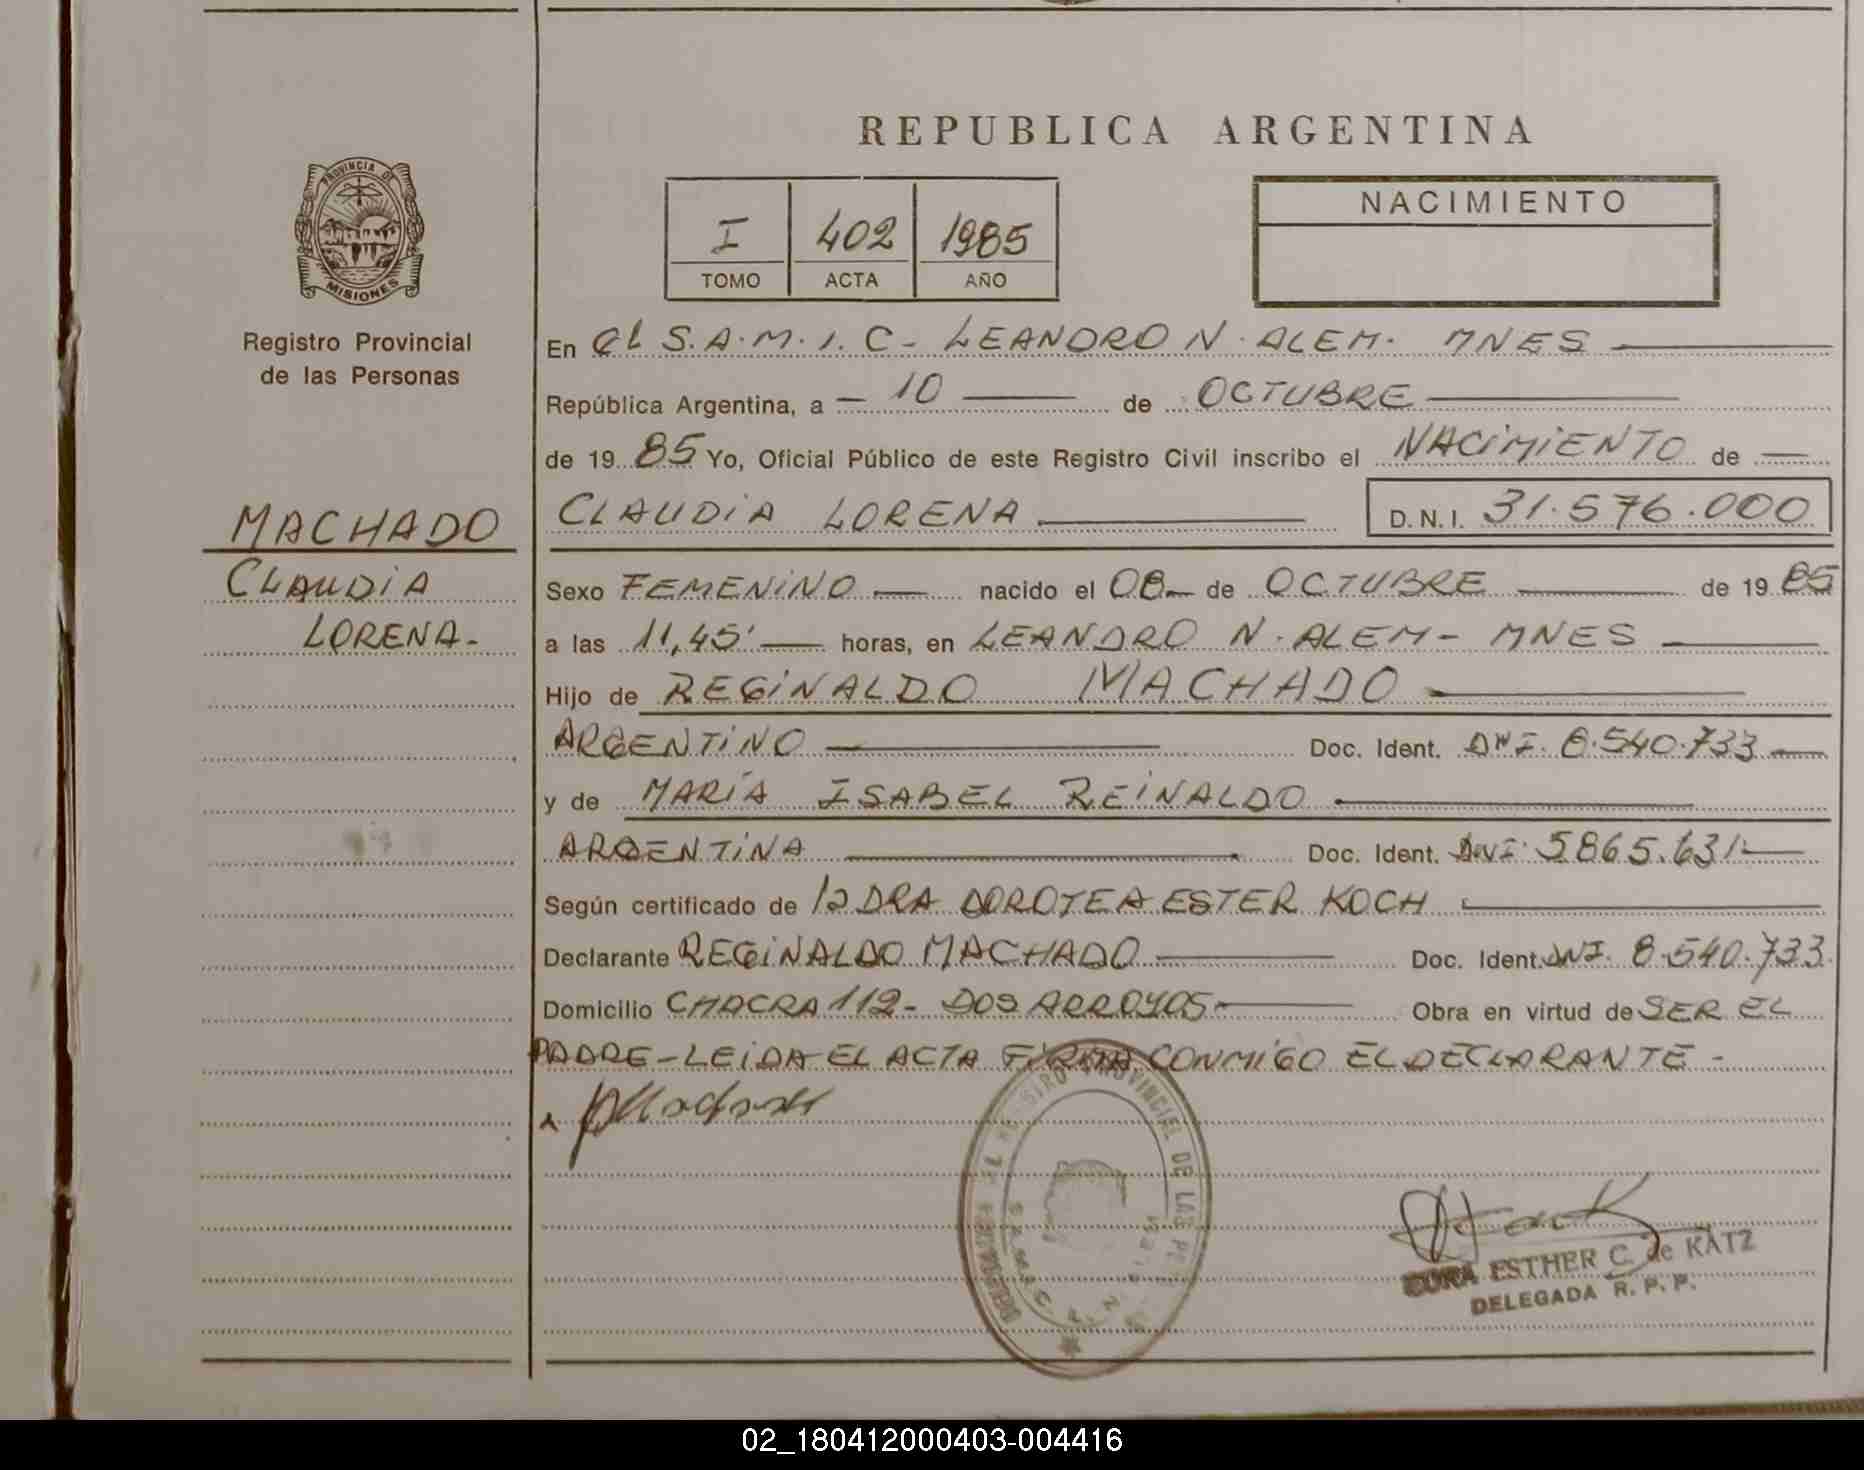 REPUBLICA ARGENTINA
PROVINCIA DE
MISIONES
Registro Provincial
de las Personas
I 402 1985
TOMO ACTA AÑO
NACIMIENTO
En el S.A.M.I.C- LEANDRO N. ALEM. MNES
República Argentina, a - 10 de OCTUBRE
de 19 85 Yo, Oficial Público de este Registro Civil inscribo el NACIMIENTO de
CLAUDIA LORENA D.N.I. 31.576.000
MACHADO
CLAUDIA
LORENA-
Sexo FEMENINO nacido el 08 de OCTUBRE de 19 85
a las 11,45' horas, en LEANDRO N. ALEM- MNES
Hijo de REGINALDO MACHADO
ARGENTINO Doc. Ident. DNI. 8.540.733
y de MARÍA ISABEL REINALDO
ARGENTINA Doc. Ident. DNI. 5865.631.
Según certificado de la DRA DOROTEA ESTER KOCH
Declarante REGINALDO MACHADO Doc. Ident. DNI. 8.540.733.
Domicilio CHACRA 112- DOS ARROYOS Obra en virtud de SER EL
PADRE-LEIDA EL ACTA FIRMA CONMIGO EL DECLARANTE-
PROVINCIAL DE LAS
CORA ESTHER C. de KATZ
DELEGADA R. P. P.
02_180412000403-004416